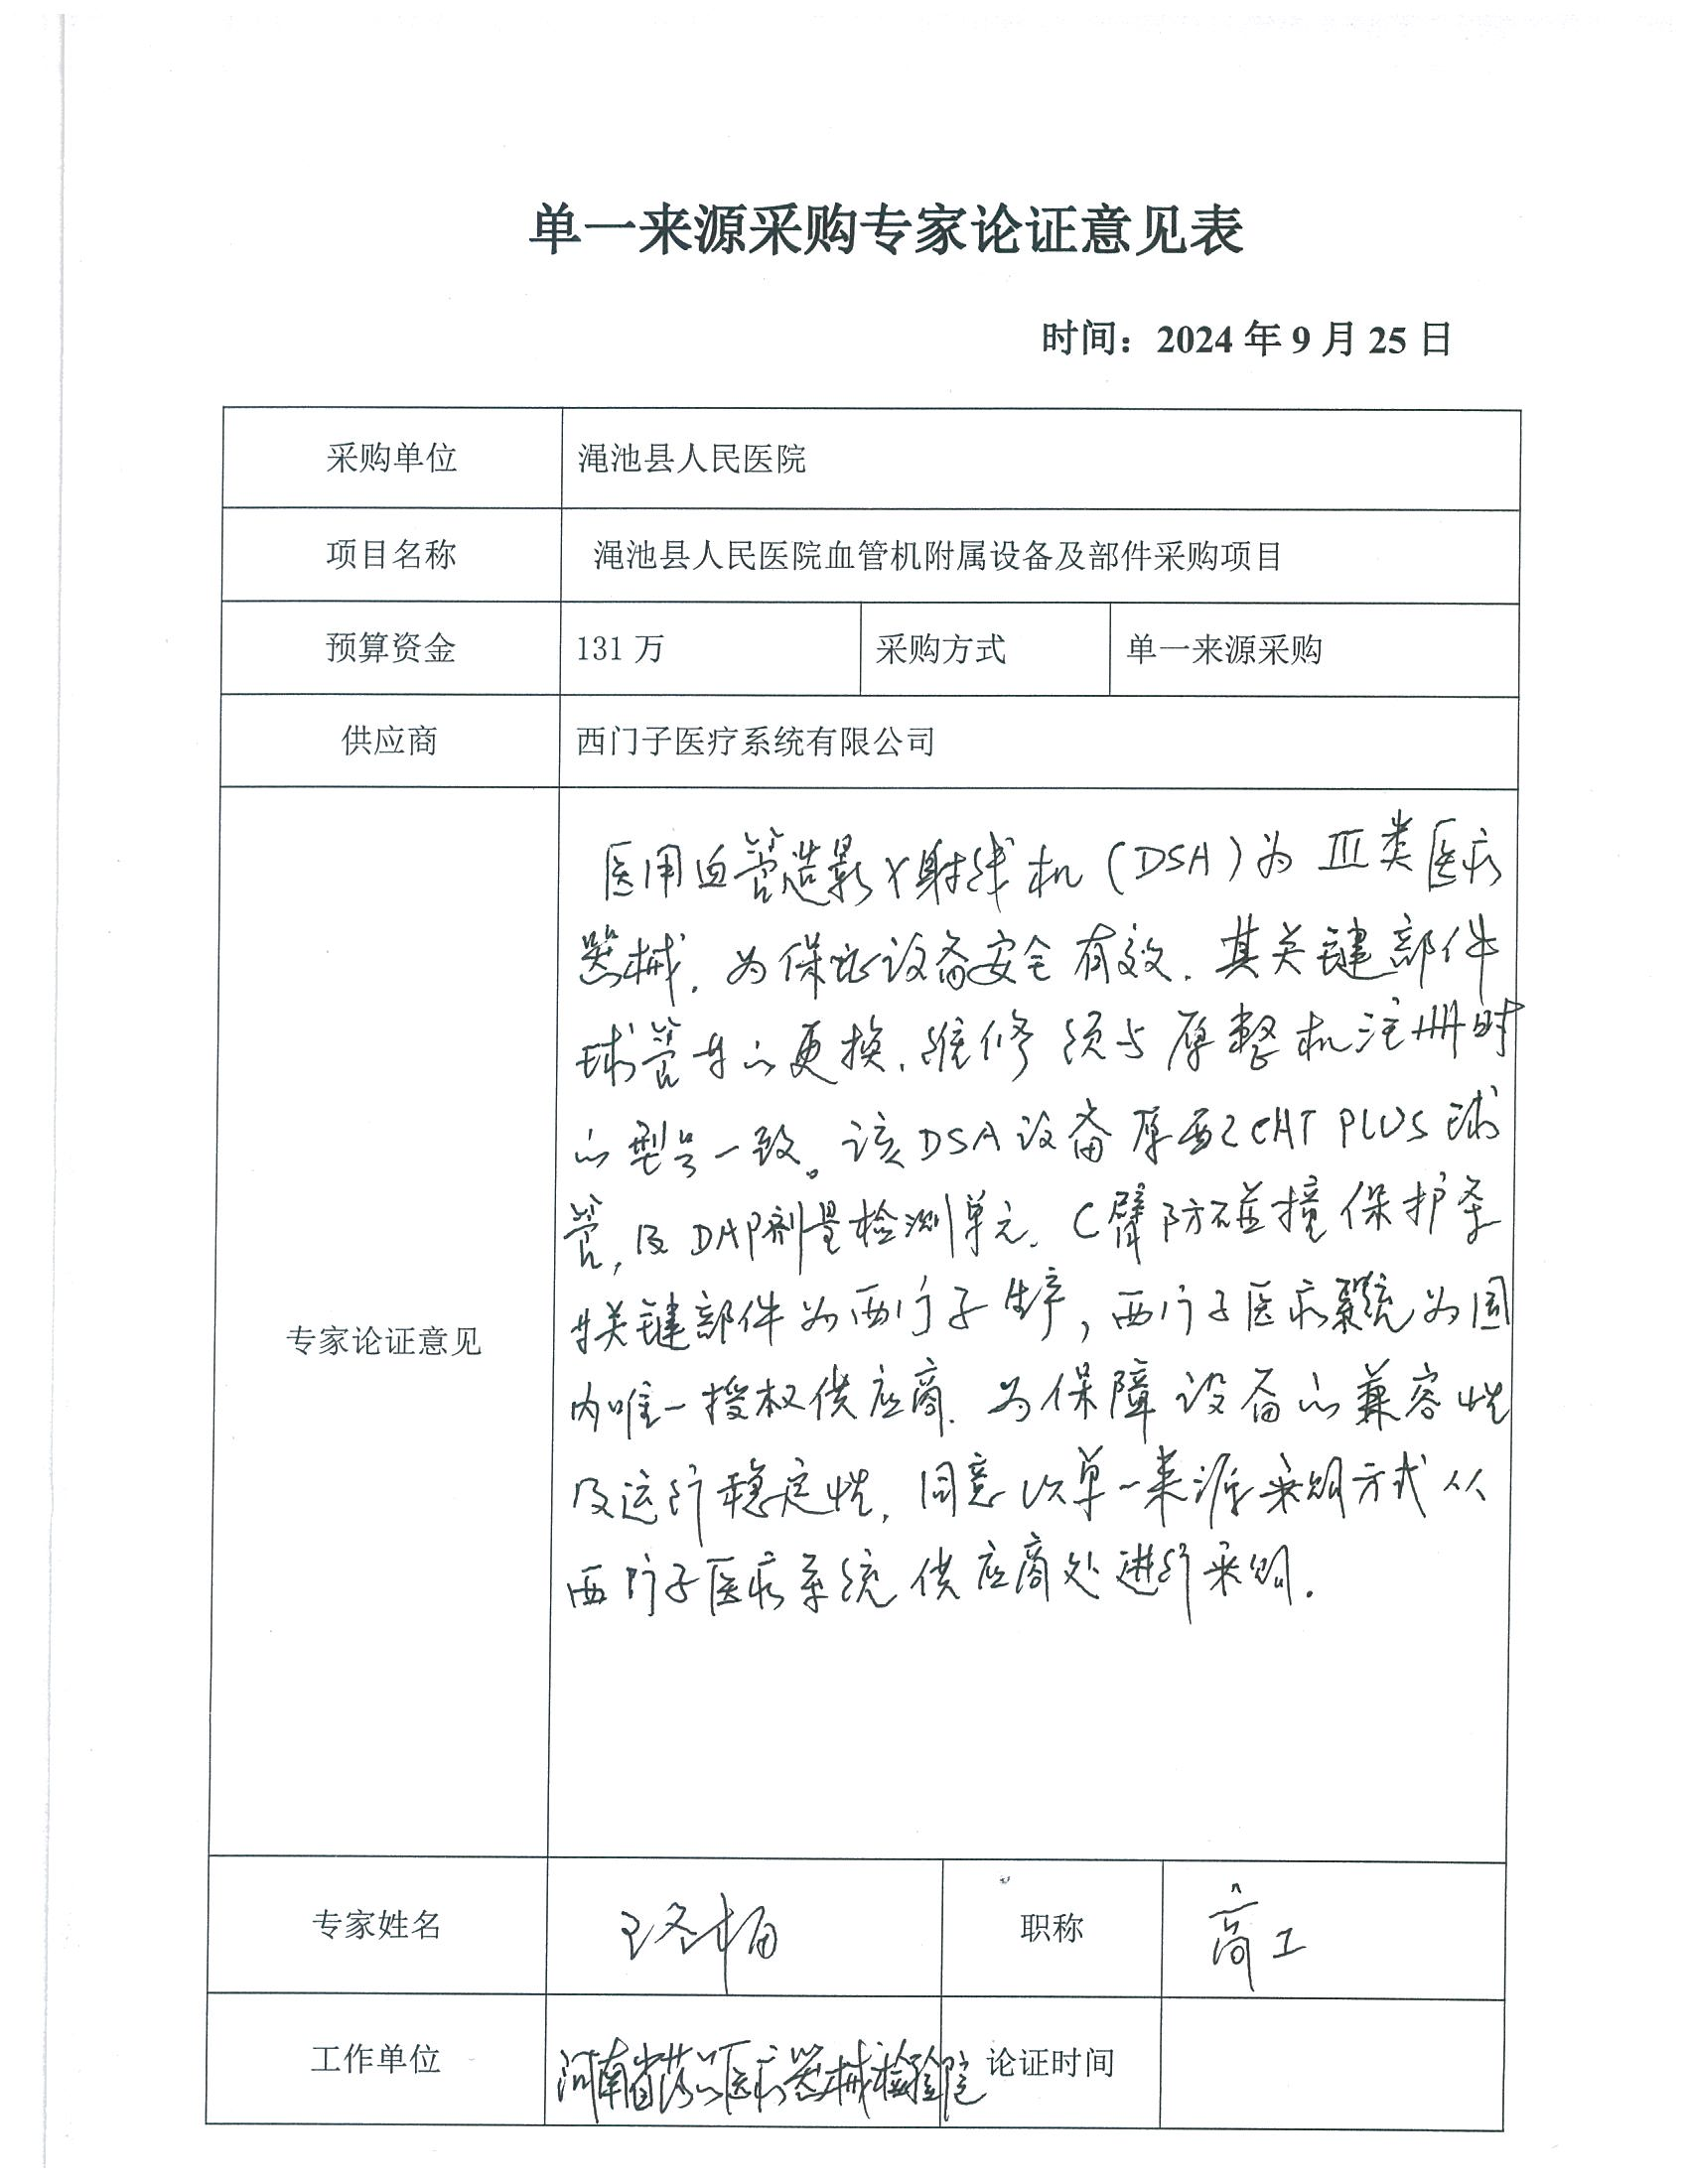 单一来源采购专家论证意见表
时间：2024年9月25日
采购单位 渑池县人民医院
项目名称 渑池县人民医院血管机附属设备及部件采购项目
预算资金 131万 采购方式 单一来源采购
供应商 西门子医疗系统有限公司
专家论证意见
医用血管造影X射线机(DSA)为Ⅲ类医疗
器械，为保证设备安全有效，其关键部件
球管等的更换、维修须与原整机注册时
的型号一致。该DSA设备原配CAT PLUS球
管，及DAP剂量检测单元、C臂防碰撞保护条
等关键部件为西门子生产，西门子医疗系统为国
内唯一授权供应商，为保障设备的兼容性
及运行稳定性，同意以单一来源采购方式从
西门子医疗系统供应商处进行采购.
专家姓名 职称 高工
工作单位 河南省药品医疗器械检验院 论证时间